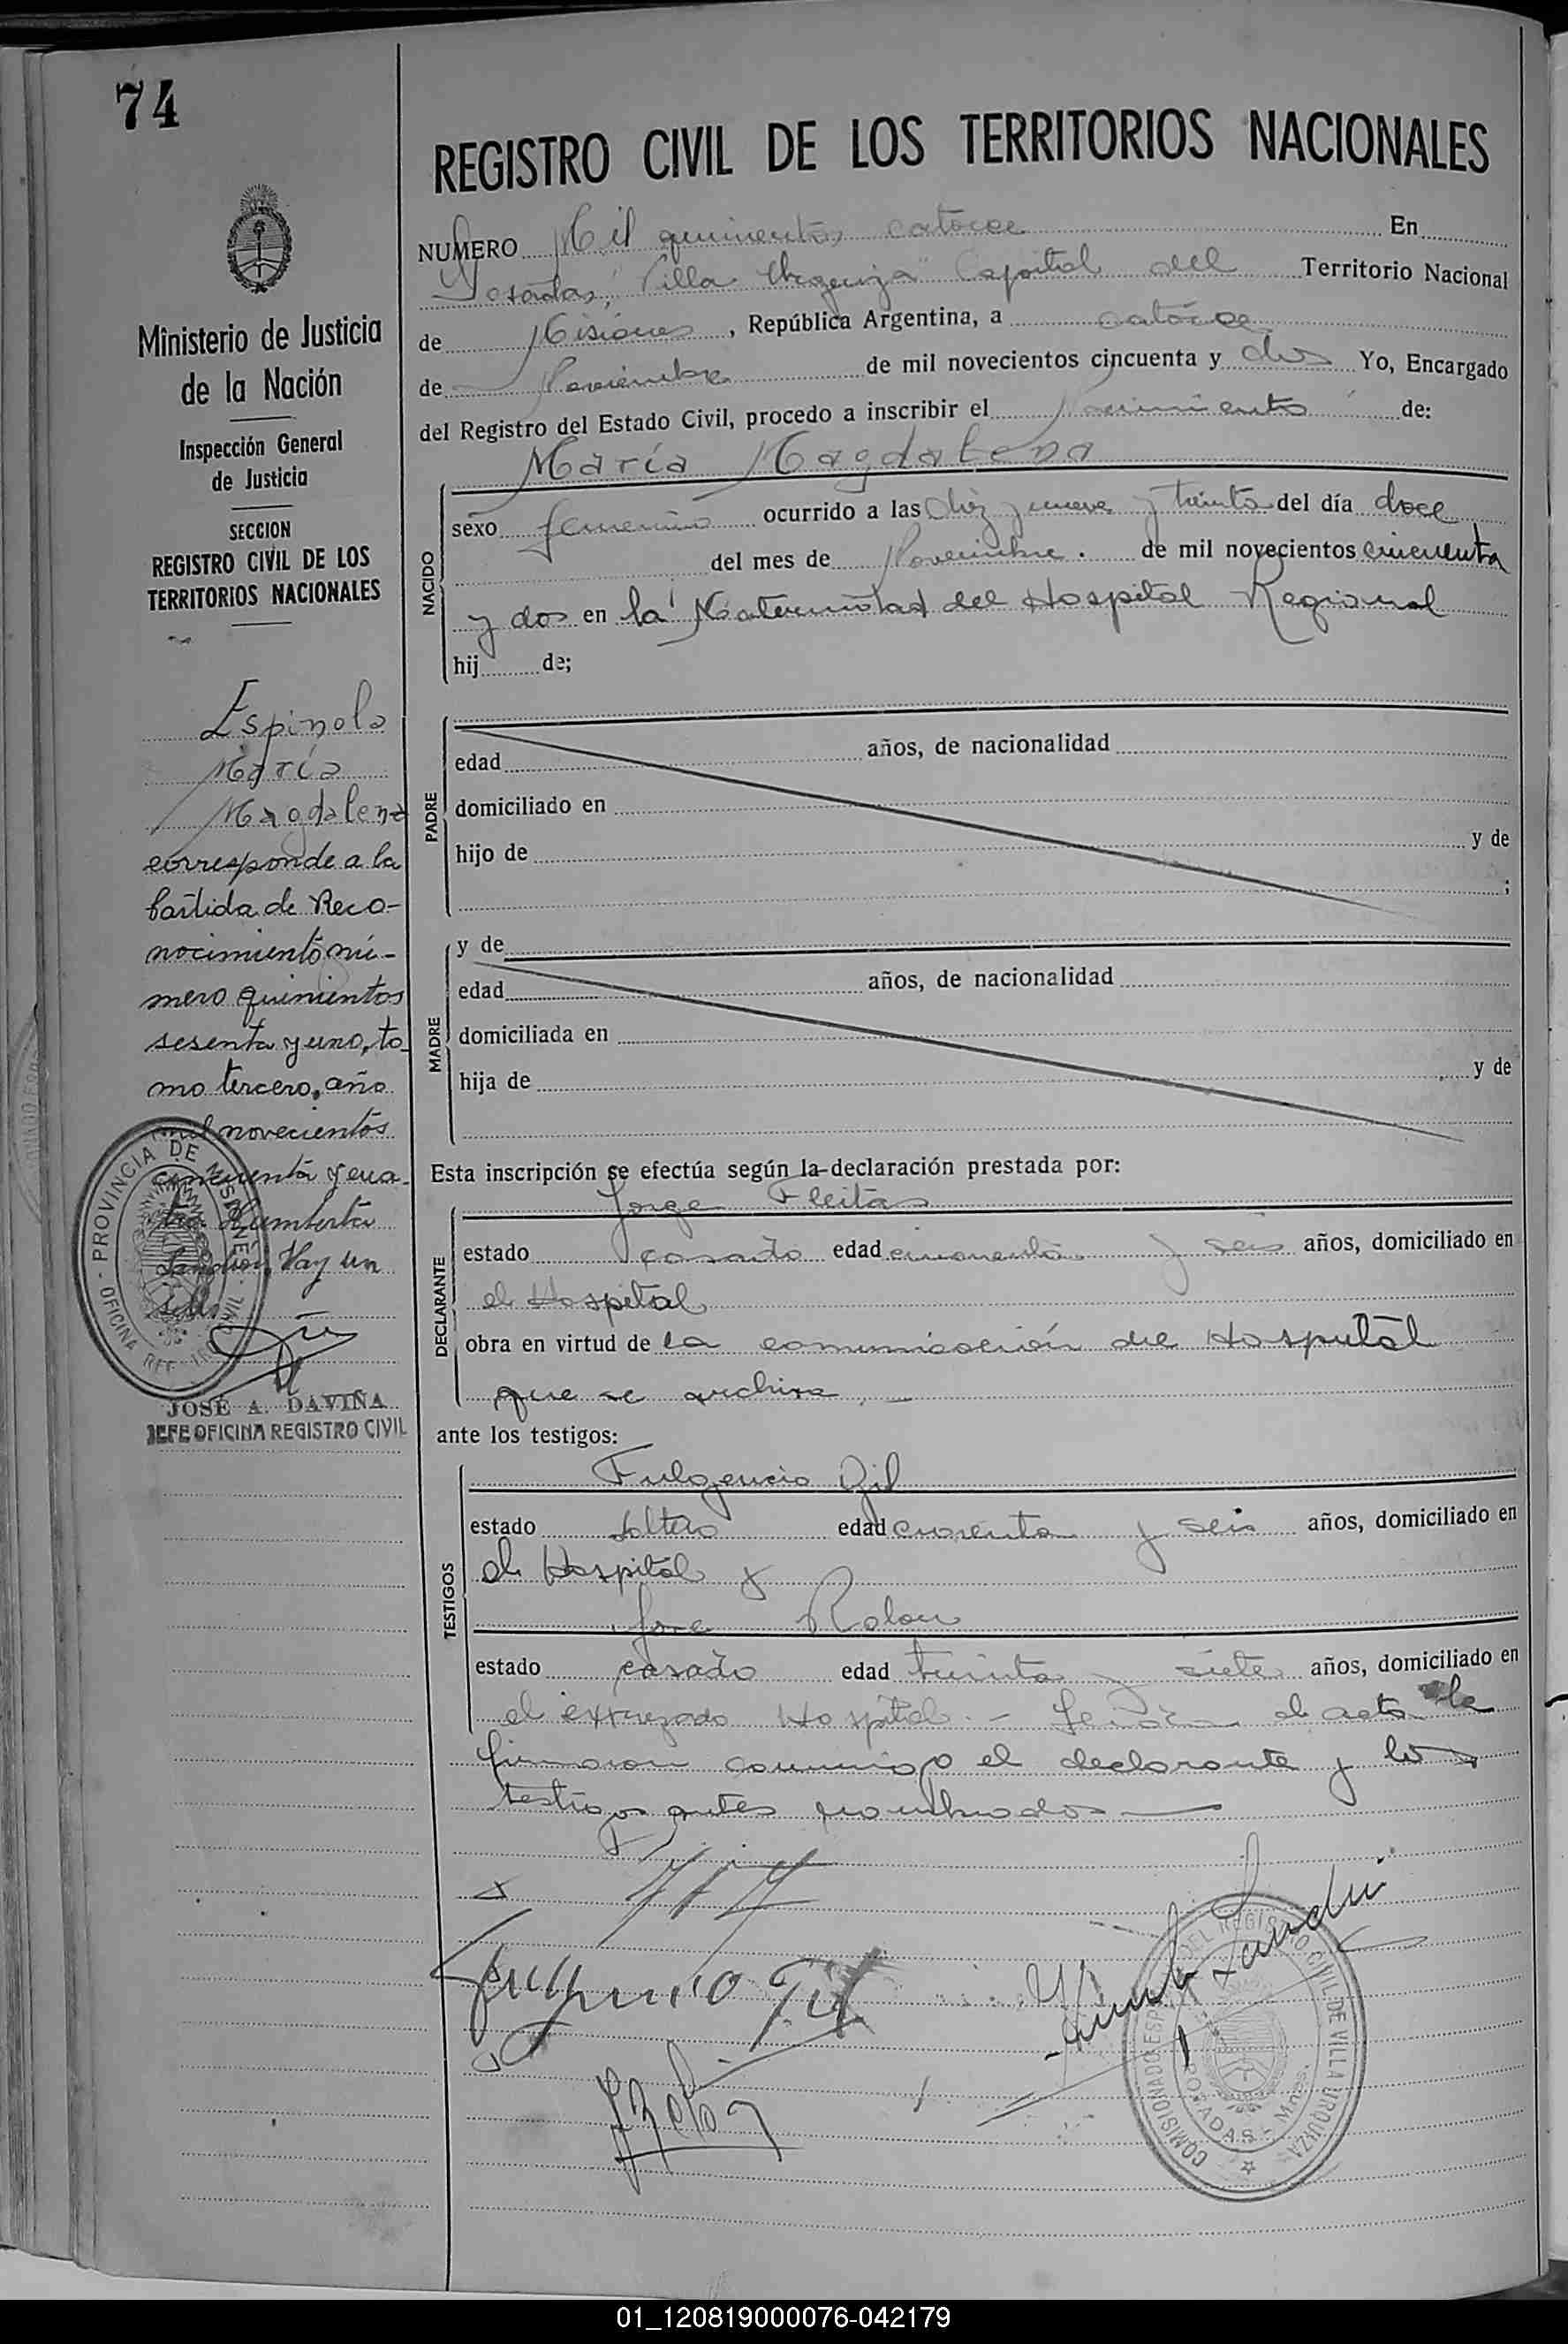 74
REGISTRO CIVIL DE LOS TERRITORIOS NACIONALES
Ministerio de Justicia
de la Nación
Inspección General
de Justicia
SECCION
REGISTRO CIVIL DE LOS
TERRITORIOS NACIONALES
Espinola
María
Magdalena
corresponde a la
partida de Reco-
nocimiento nú-
mero quinientos
sesenta y uno, to-
mo tercero, año
mil novecientos
cincuenta y cua-
tro Humberto
Hay un
sello
PROVINCIA DE MISIONES
OFICINA REG. CIVIL
JOSÉ A. DAVIÑA
JEFE OFICINA REGISTRO CIVIL
NUMERO Mil quinientos catorce En
Posadas, "Villa Urquiza" Capital del Territorio Nacional
de Misiones, República Argentina, a catorce
de Noviembre de mil novecientos cincuenta y dos Yo, Encargado
del Registro del Estado Civil, procedo a inscribir el Nacimiento de:
María Magdalena
NACIDO
sexo femenino ocurrido a las diez y nueve y treinta del día doce
del mes de Noviembre. de mil novecientos cincuenta
y dos en la Maternidad del Hospital Regional
hij de;
PADRE
edad años, de nacionalidad
domiciliado en
hijo de y de
;
MADRE
y de
edad años, de nacionalidad
domiciliada en
hija de y de
Esta inscripción se efectúa según la declaración prestada por:
Jorge Fleitas
DECLARANTE
estado casado edad cincuenta y seis años, domiciliado en
el Hospital
obra en virtud de la comunicación del Hospital
que se archiva
ante los testigos:
Fulgencio Gil
TESTIGOS
estado soltero edad cuarenta y seis años, domiciliado en
el Hospital y
José Rolon
estado casado edad treinta y siete años, domiciliado en
el expresado Hospital. - Leída el acta la
firmaron conmigo el declarante y los
testigos antes nombrados
Fulgencio Gil
J Rolon
COMISIONADO ESP. DEL REGISTRO CIVIL DE VILLA URQUIZA
POSADAS - Mnes.
01_120819000076-042179